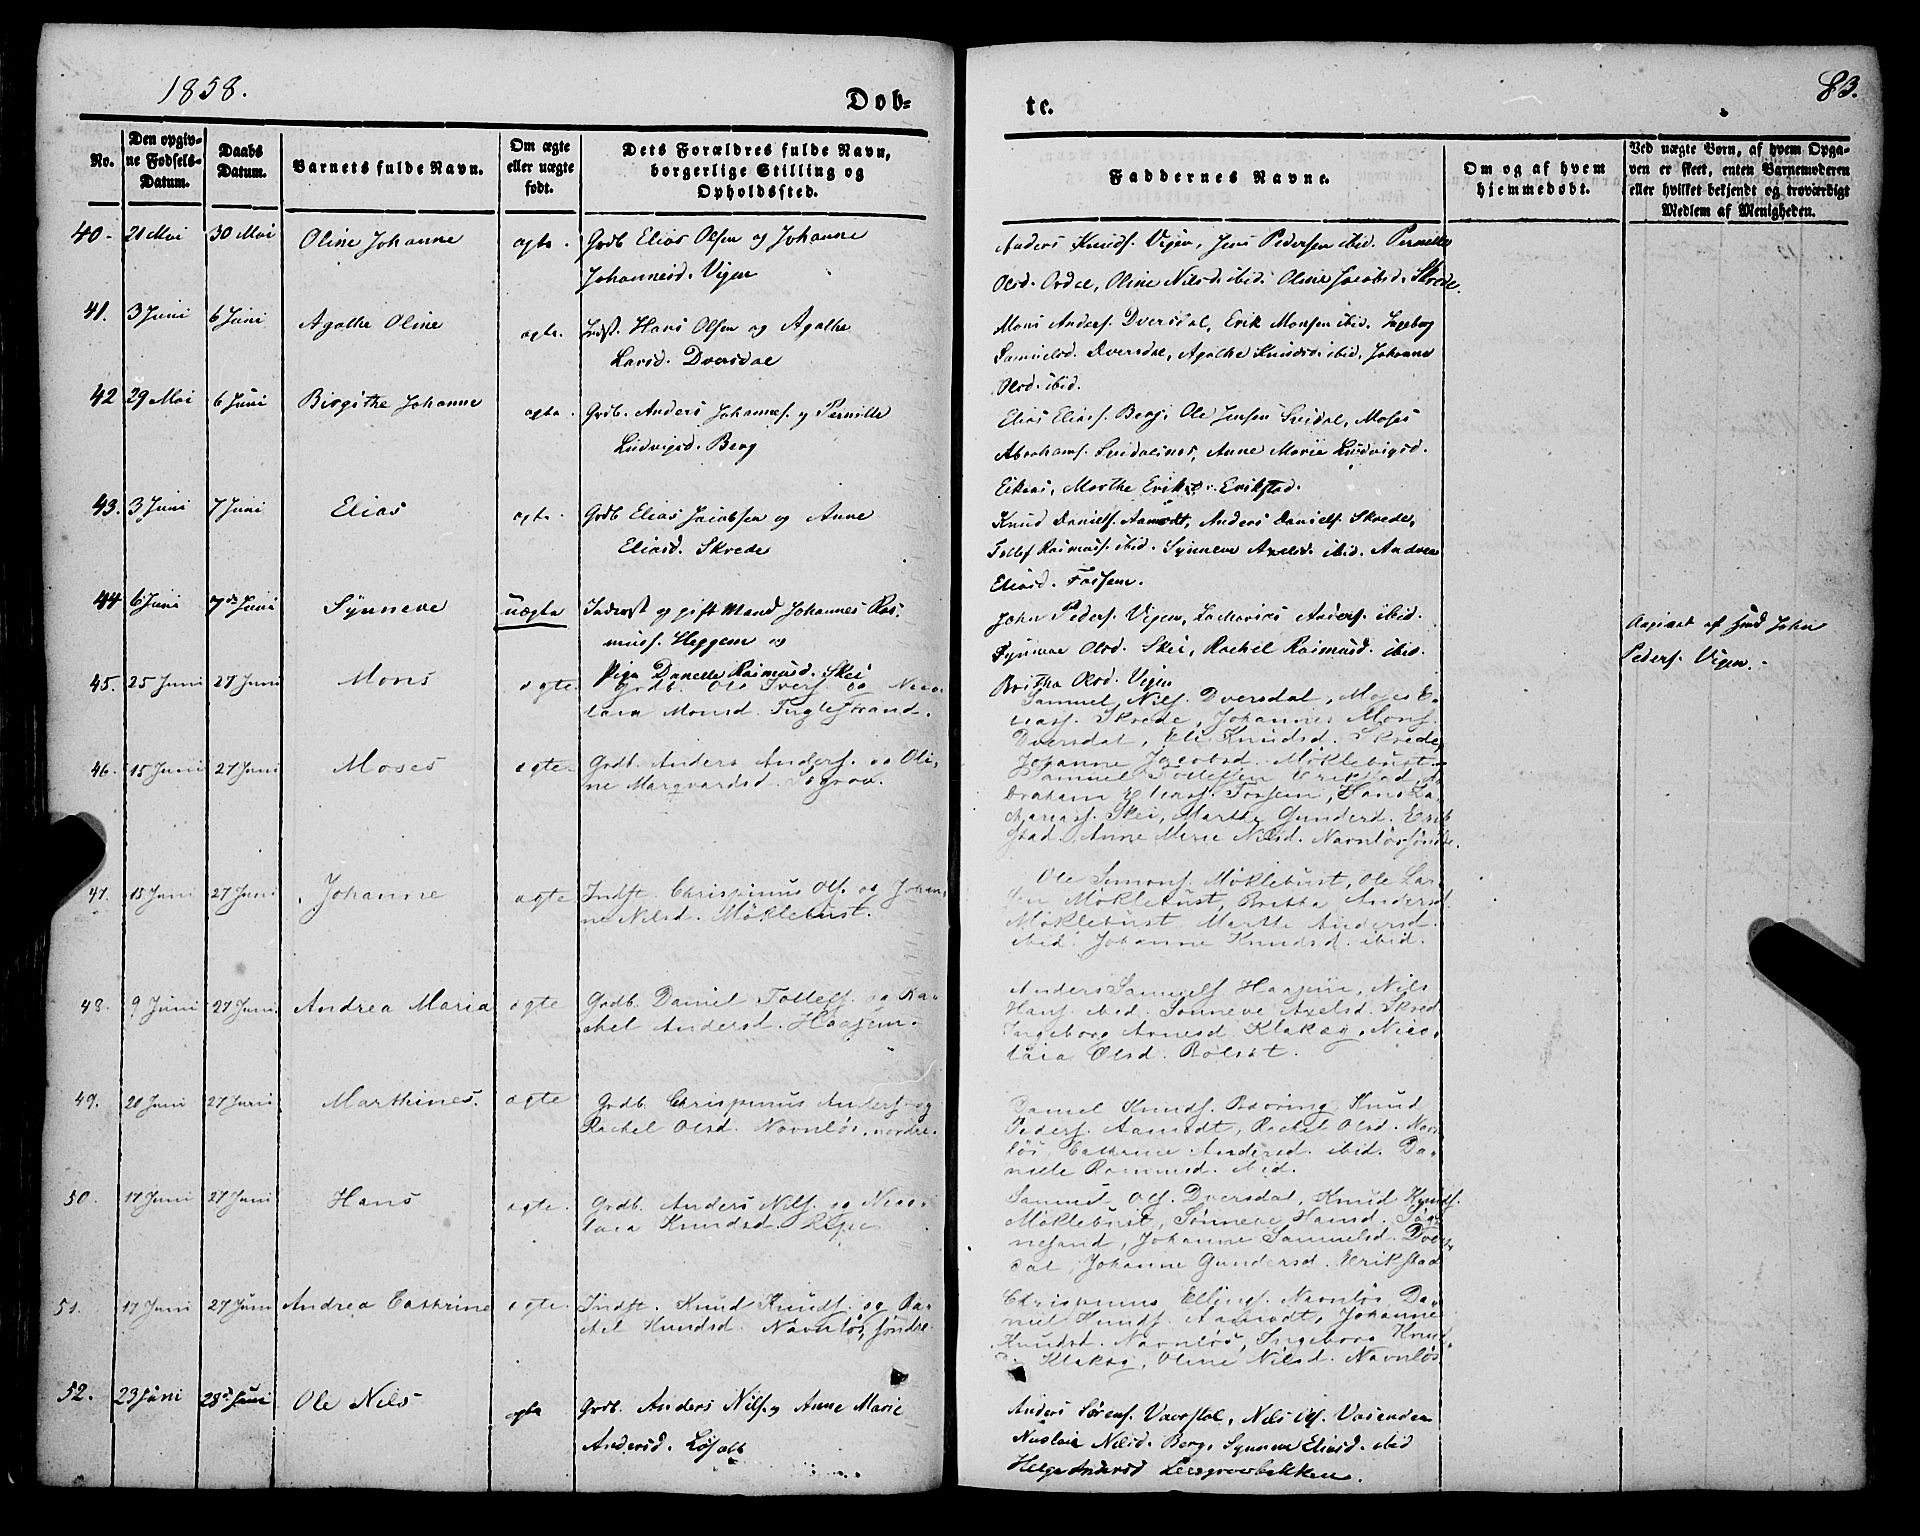 1858.
Døb-
te.
83.
No.
Den opgiv-
ne Fødsels-
Datum.
Daabs
Datum.
Barnets fulde Navn.
Om ægte
eller uægte
født.
Dets Forældres fulde Navn,
borgerlige Stilling og
Opholdssted.
Faddernes Navne.
Om og af hvem
hjemmedøbt.
Ved uægte Børn, af hvem Opga-
ven er skeet, enten Barnemoderen
eller hvilket bekjendt og troværdigt
Medlem af Menigheden.
40. 21 Mai 30 Mai Oline Johanne ægte. Grdb Elias Olsen og Johanne
Johannesd. Vigen
Anders Knuds. Vigen, Jens Pedersen ibid. Pernille
Olsd. Ordal, Oline Nilsd ibid. Oline Jacobsd. Skrede.
41. 3 Juni 6 Juni Agathe Oline ægte. Indst. Hans Olsen og Agathe
Larsd. Dversdal
Mons Anders. Dversdal, Erik Monsen ibid. Ingeborg
Samuelsd. Dversdal, Agathe Knudsd. ibid, Johanne
Olsd. ibid.
42 29 Mai 6 Juni Birgithe Johanne ægte. Grdb. Anders Johannes. og Pernille
Ludvigsd. Berg
Elias Elias. Berg, Ole Jensen Svidal, Moses
Abrahams. Anne Marie Ludvigsd.
Eikaas, Marthe Eriksd. Erikstad.
43. 3 Juni 7 Juni Elias ægte. Grdb Elias Jacobsen og Anne
Eliasd. Skrede
Knud Daniels. Aamodt, Anders Daniels. Skrede,
Tollef Rasmus. ibid. Synneve Axelsd. ibid. Andrea
Eliasd. Fossem.
44 6 Juni 7de Juni Synneve uægte Inderst og gift Mand Johannes Ras-
muss. Heggem og
Pige Danelle Rasmusd. Skei
John Peders. Vigen, Zacharias Anders. ibid.
Synneve Olsd. Skei, Rachel Rasmusd. ibid.
Britha Olsd. Vigen
Angivet af John
Peders. Vigen.
45. 25 Juni 27 Juni Mons ægte. Grdb. Ole Ivers. og Nico-
laia Monsd. Fuglestrand.
Samuel Nils. Dversdal, Moses E-
lias. Skrede, Johannes Mons.
Dversdal, Eli Knudsd. Skrede,
Johanne Jacobsd. Møklebust.
46. 15 Juni 27 Juni Moses ægte. Grdb. Anders Anders. og Oli-
ne Marqvardsd. Søgrov.
Samuel Tollefsen Erikstad, A-
braham Elias. Fossem, Hans Za-
charias. Skei, Marthe Gundersd. Erik-
stad, Anne Marie Nilsd. Navnløs søndre.
47. 15 Juni 27 Juni Johanne ægte Indst. Chrispinus Ols. og Johan-
ne Nilsd. Møklebust.
Ole Simons. Møklebust, Ole Lar-
sen Møklebust, Britha Andersd.
Møklebust Marthe Andersd.
ibid. Johanne Knudsd. ibid.
48. 9 Juni 27 Juni. Andrea Maria ægte Grdb. Daniel Tollefs. og Ra-
chel Andersd. Haasem.
Anders Samuels Haasem, Nils
Hans. ibid. Sønneve Axelsd. Skred
Ingeborg Arnesd. Klakeg, Nico-
laia Olsd. Bolsæt.
49. 20 Juni 27 Juni Marthines. ægte Grdb. Chrispinus Anders. og
Rachel Olsd. Navnløs, nordre.
Daniel Knuds. Knud
Peders. Aamodt, Rachel Olsd. Navn-
løs, Cathrine Andersd. ibid. Da-
nielle Rasmusd. ibid.
50. 17 Juni 27 Juni Hans ægte. Grdb. Anders Nils. og Nico-
laia Knudsd.
Samuel Ols. Dversdal, Knud Knuds.
Møklebust, Sønneve Hansd. Søg-
nesand, Johanne Samuelsd. Dvers-
dal, Johanne Gundersd. Erikstad
51. 17 Juni 27 Juni Andrea Cathrine ægte. Indst. Knud Knuds. og Ra-
chel Knudsd. Navnløs, søndre.
Chrispinus Ellings. Navnløs Da-
niel Knuds. Aamodt, Johanne
Knudsd. Navnløs, Ingeborg Knud-
Klakeg, Oline Nilsd. Navnløs
52. 23 Juni 28de Juni Ole Nils ægte Grdb. Anders Nils. og Anne Marie
Andersd. Løsæth
Anders Sørens. Nils Ols.
Nicolaia Nilsd. Berg, Synneve Eliasd. ibid
Helge Andersd